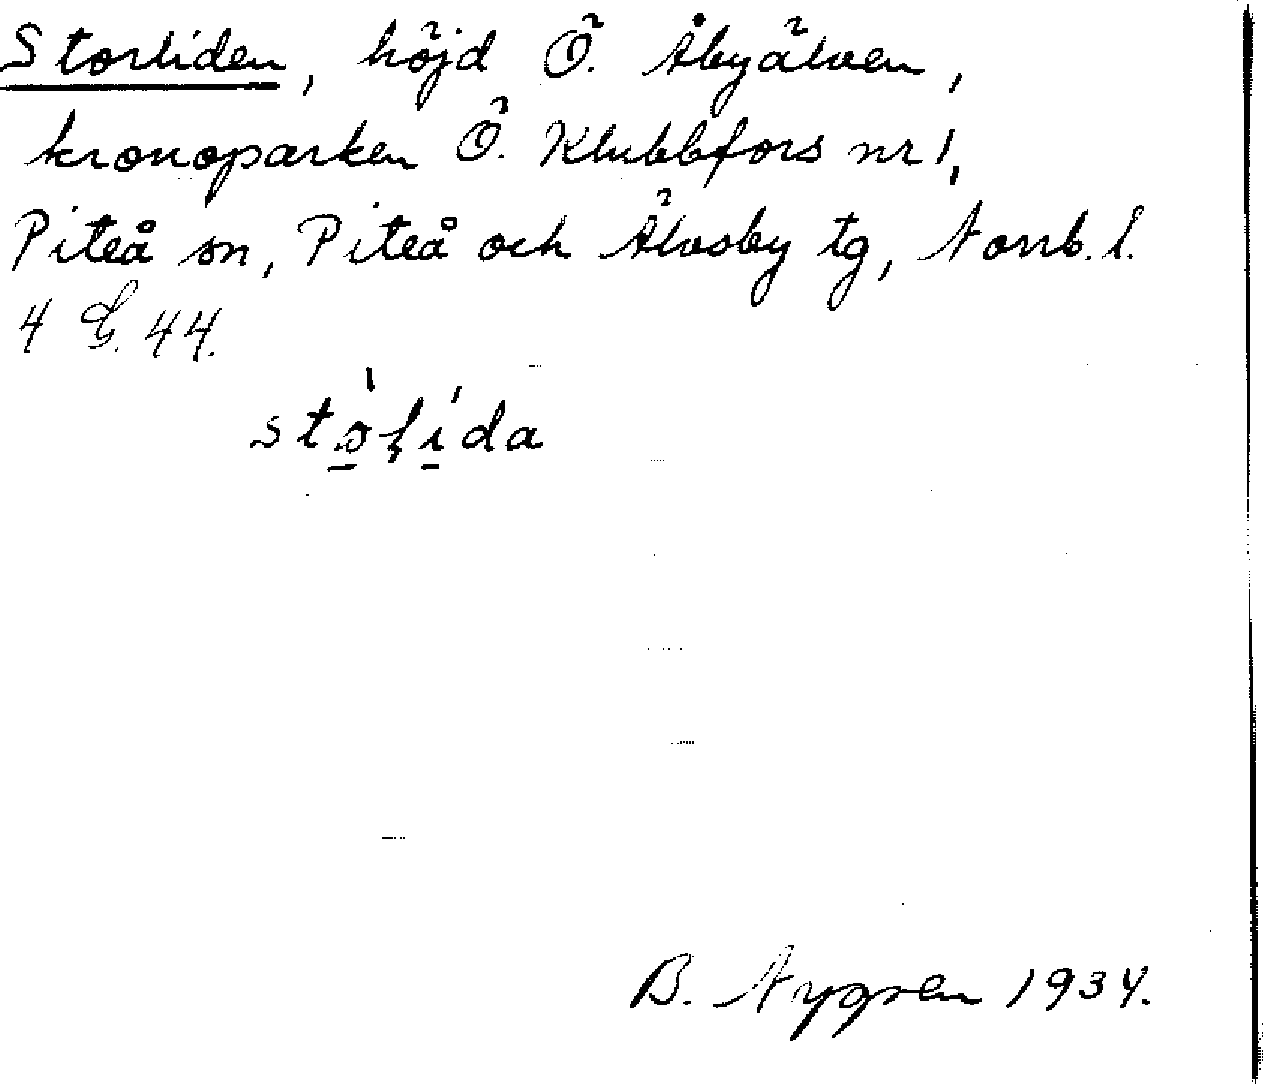 Storliden, höjd Ö. Åbyälven,
kronoparken Ö. Klubbfors nr 1,
Piteå sn, Piteå och Älvsby tg, Norrb. l.
4 G. 44.
B. Nygren 1934.